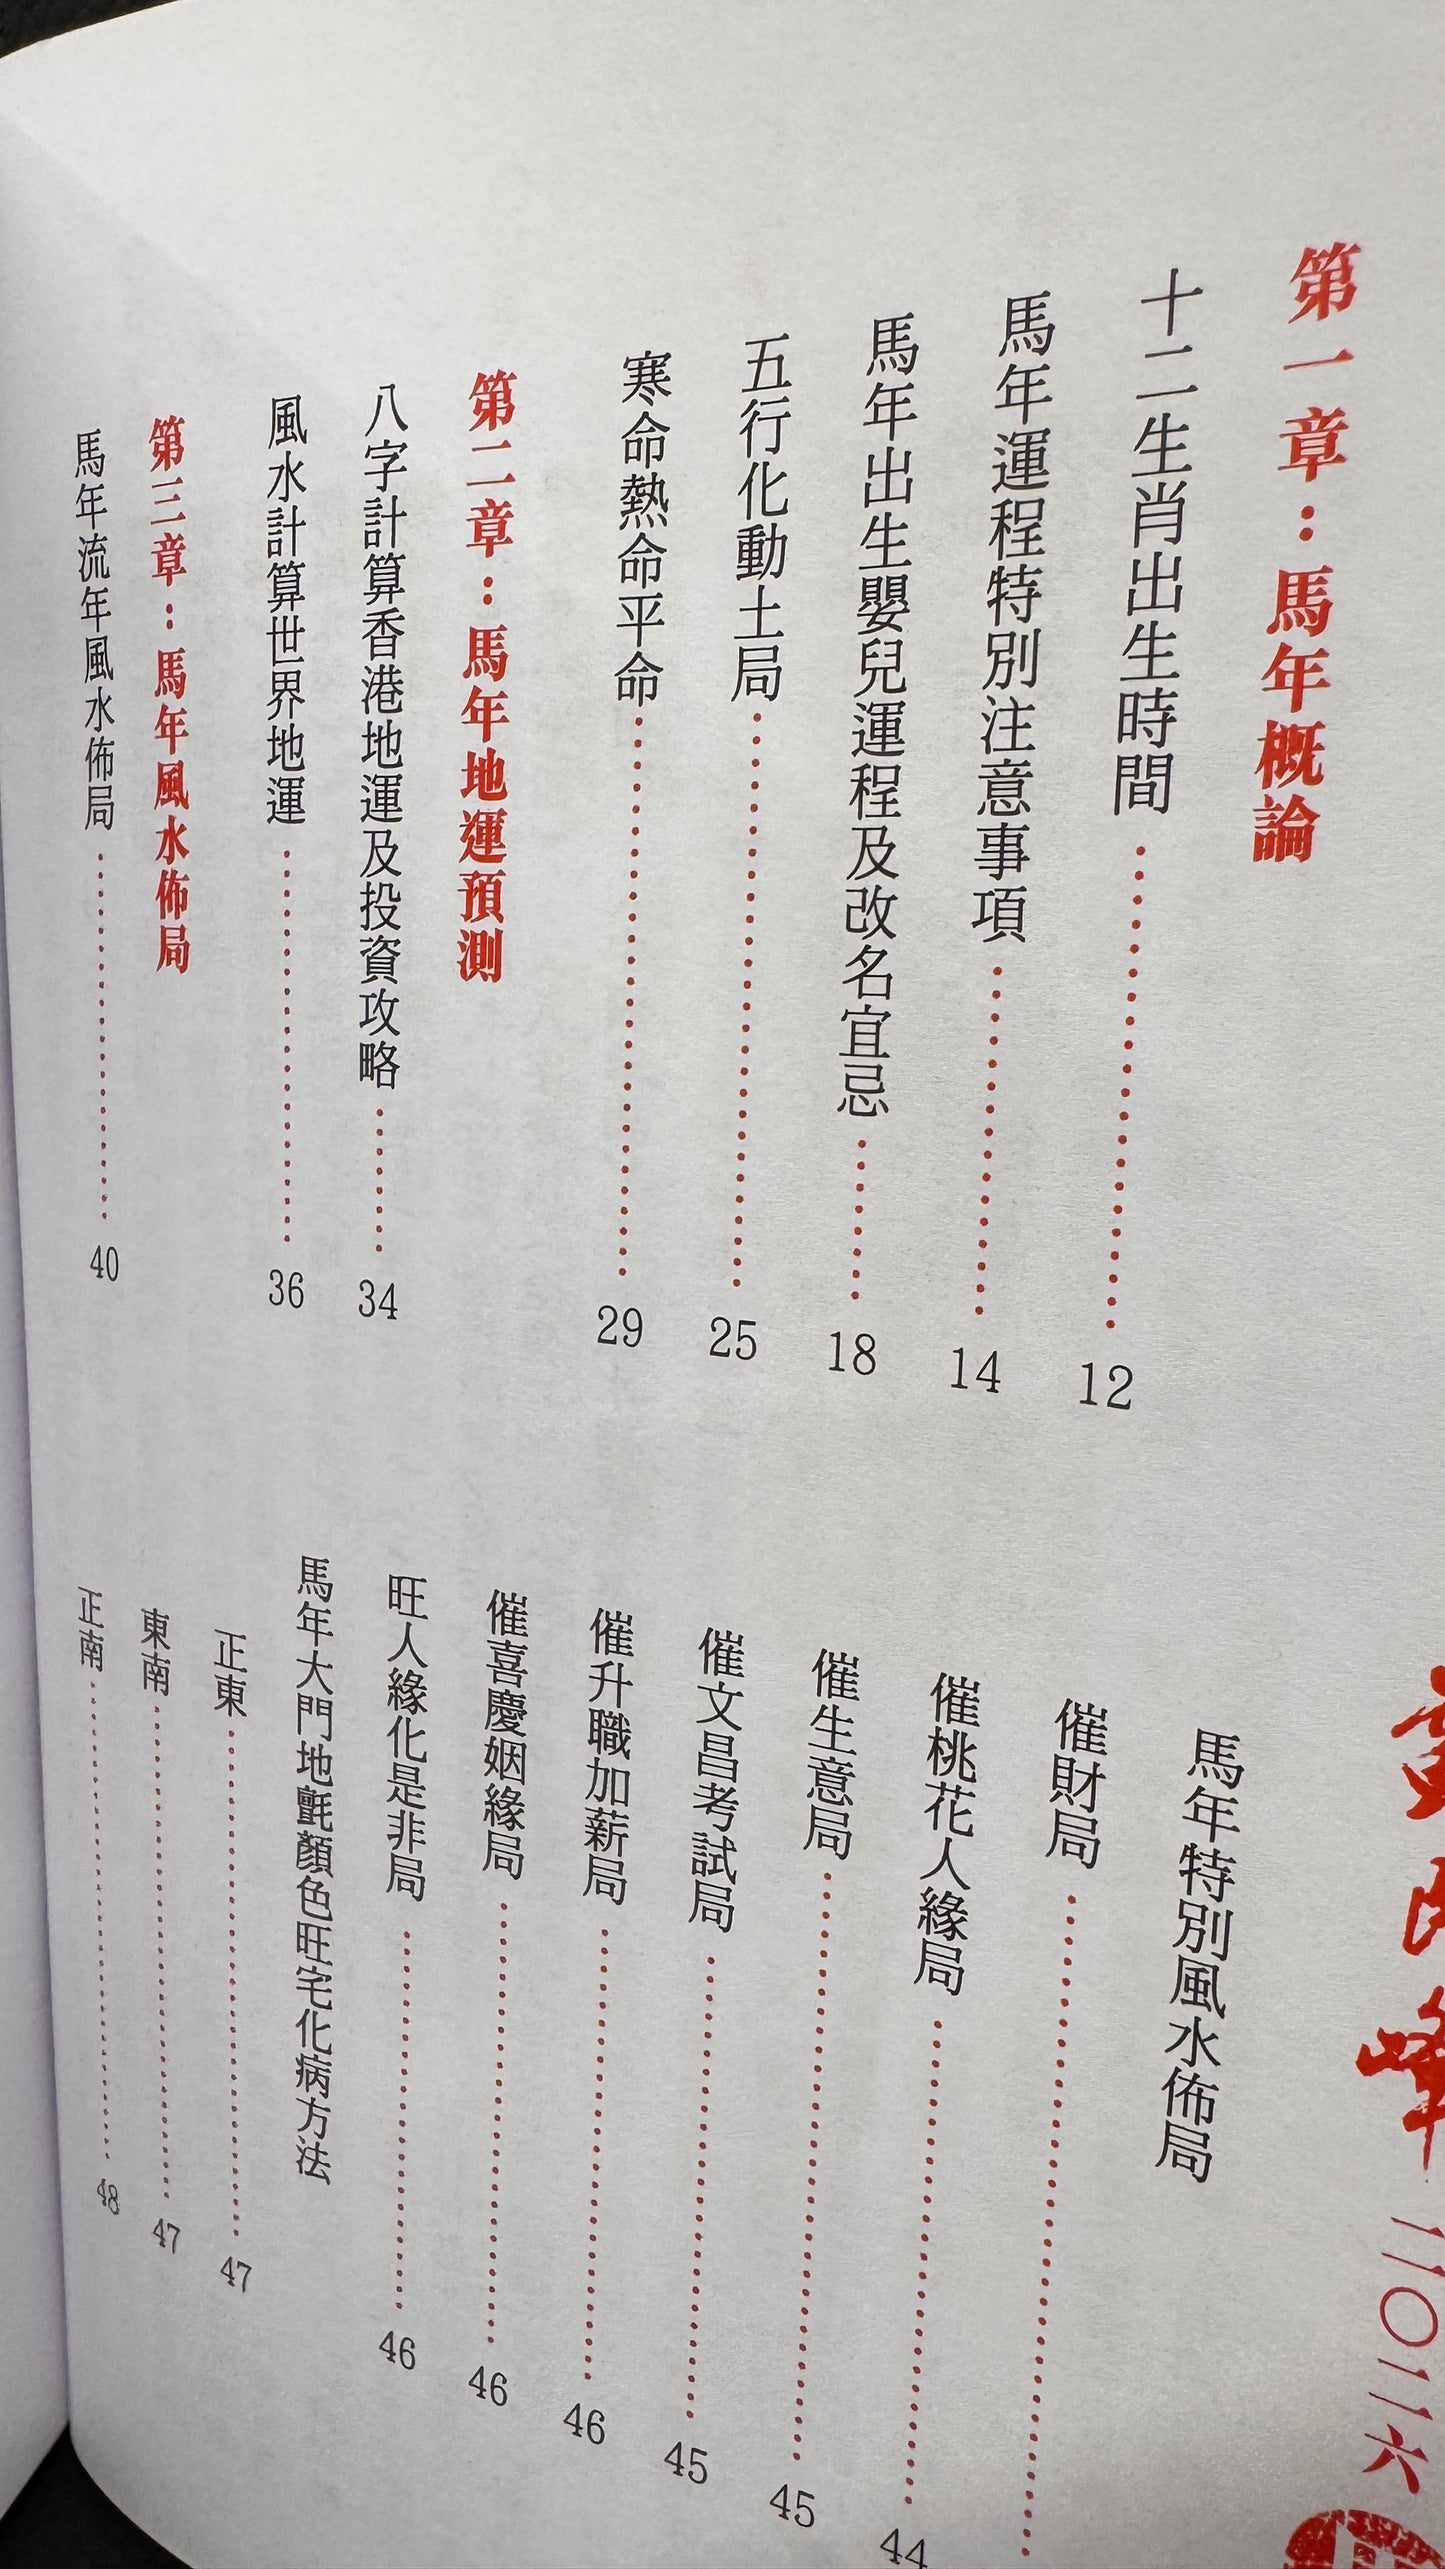 第一章：馬年概論
十二生肖出生時間 12
馬年運程特別注意事項 14
馬年出生嬰兒運程及改名宜忌 18
五行化動土局 25
寒命熱命平命 29
第二章：馬年地運預測
八字計算香港地運及投資攻略 34
風水計算世界地運 36
第三章：馬年風水佈局
馬年流年風水佈局 40
二〇二六
馬年特別風水佈局
催財局
催桃花人緣局 44
催生意局 45
催文昌考試局 45
催升職加薪局 46
催喜慶姻緣局 46
旺人緣化是非局 46
馬年大門地氈顏色旺宅化病方法
正東 47
東南 47
正南 48